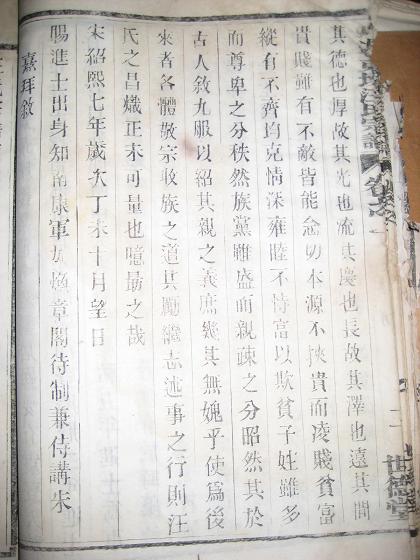 其德也厚故其光也流其慶也長故其澤也遠其間
貴賤雖有不敵皆能念切本源不挾貴而凌賤貧富
縱有不齊均克情深雍睦不恃富以欺貧子姓雖多
而尊卑之分秩然族黨雖盛而親疎之分昭然其於
古人敘九服以紹其親之義庶幾其無媿乎使為後
來者各體敬宗收族之道其勵繼志述事之行則汪
氏之昌熾正未可量也噫勗之哉
宋紹熙七年歲次丁未十月望日
賜進士出身知南康軍加煥章閣待制兼侍講朱
熹拜敘
汪氏宗譜
卷之一
世德堂